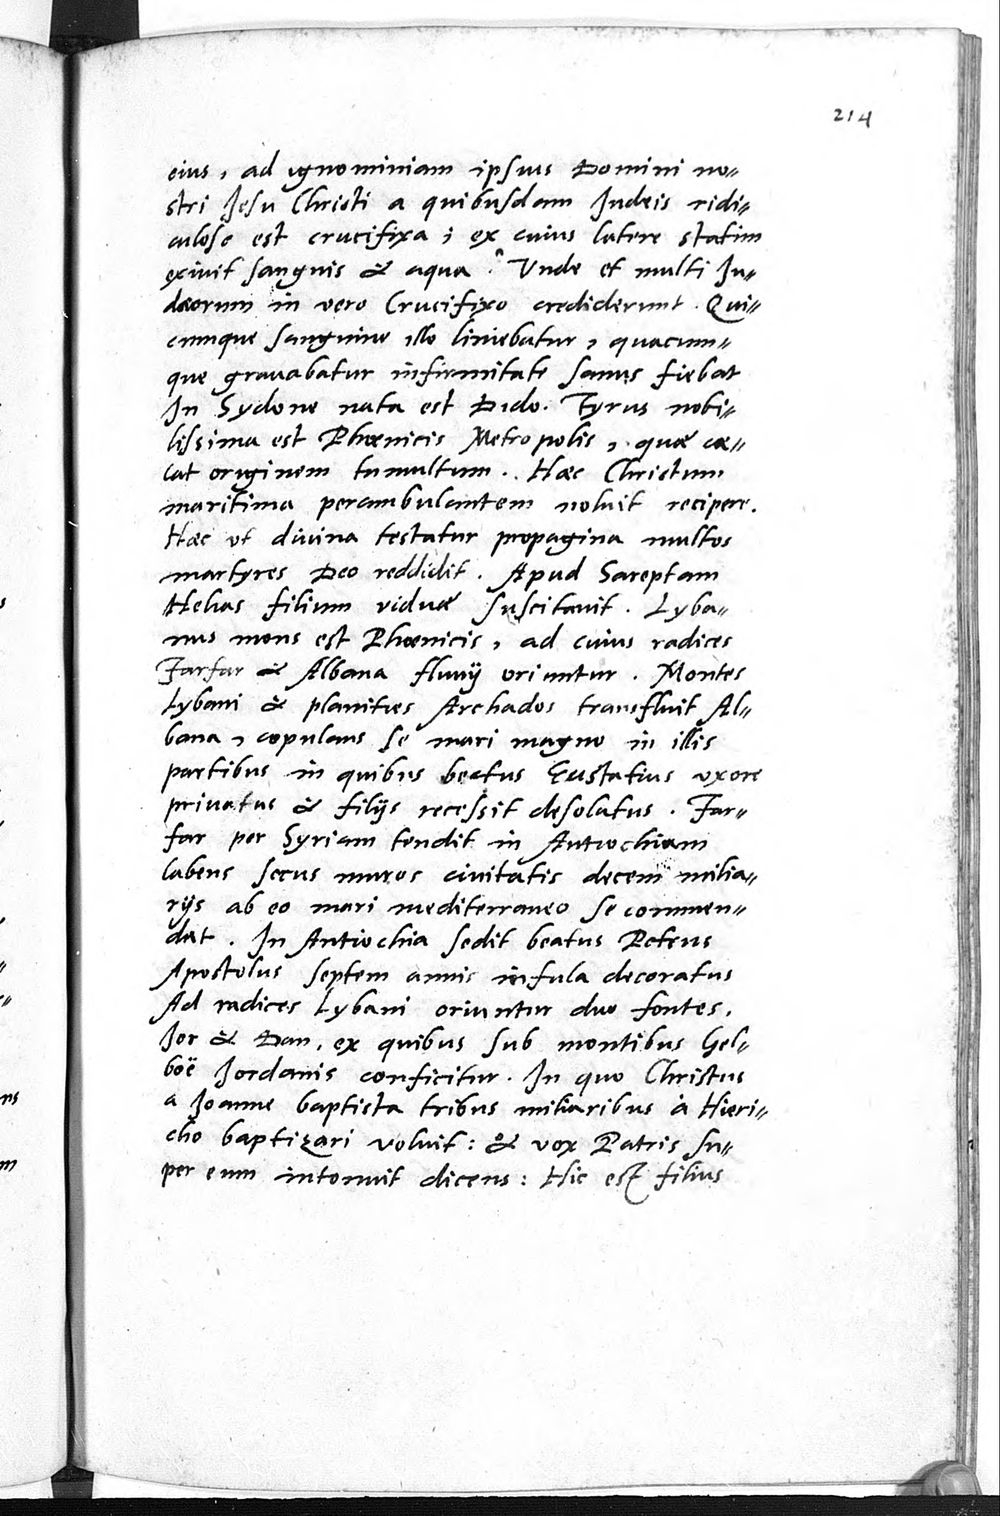 214
eius, ad ignominiam ipsius Domini no=
stri Jesu Christi a quibusdam Judeis ridi=
culose est crucifixa; ex cuius latere statim
exiuit sanguis & aqua. Vnde et multi Ju=
dæorum in vero Crucifixo crediderunt. Qui=
cumque sanguine illo liniebatur, quacum=
que grauabatur infirmitate sanus fiebat
In Sydone nata est Dido. Tyrus nobi=
lissima est Phœnicis Metropolis, quæ
originem tumultum. Hæc Christum
maritima perambulantem noluit recipere.
Hæc vt diuina testatur propagina multos
martyres Deo reddidit. Apud Sareptam
Helias filium viduæ suscitauit. Lyba=
nus mons est Phœnicis, ad cuius radices
Farfar & Albana fluuij oriuntur. Montes
Lybani & planities Archados transfluit Al=
bana, copulans se mari magno in illis
partibus in quibus beatus Eustatius vxore
priuatus & filijs recessit desolatus. Far=
far per Syriam tendit in Antiochiam
labens secus muros ciuitatis decem milia=
rijs ab eo mari mediterraneo se commen=
dat. In Antiochia sedit beatus Petrus
Apostolus septem annis infula decoratus
Ad radices Lybani oriuntur duo fontes,
Jor & Dan, ex quibus sub montibus Gel=
boë Jordanis conficitur. In quo Christus
a Joanne baptista tribus miliaribus à Hieri=
cho baptizari voluit: & vox Patris su=
per eum intonuit dicens: Hic est filius